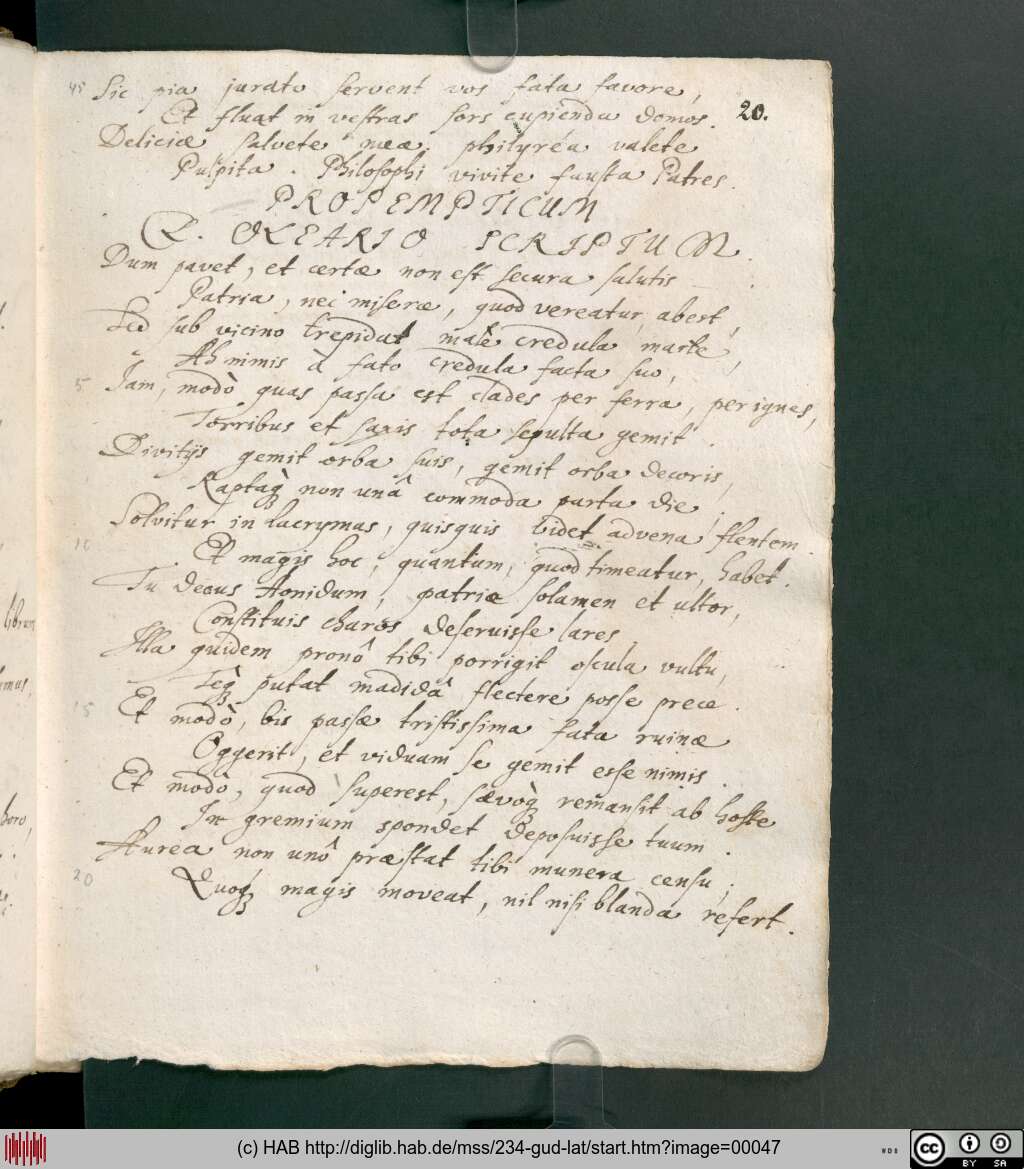 45 Sic pia jurato servent vos fata favore,
20.
Et fluat in vestras sors cupienda domos.
Deliciæ salvete meæ. philyréa valete
Pulpita. Philosophi vivite fausta Patres.
PROPEMPTICUM
D. OLEARIO SCRIPTUM.
Dum pavet, et certæ non est secura salutis
Patria, nec miseræ, quod vereatur, abest,
Sed sub vicino trepidat malè credula marte,
Ah nimis à fato credula facta suo,
5 Jam, modò quas passa est clades per ferra, per ignes,
Torribus et saxis tota sepulta gemit.
Divitijs gemit orba suis, gemit orba decoris,
Raptaq; non unâ commoda parta die,
Solvitur in lacrymas, quisquis videt advena flentem.
10 Et magis hoc, quantum, quod timeatur, habet.
Tu decus Aonidum, patriæ solamen et ultor,
Constituis charos deseruisse lares,
Illa quidem pronô tibi porrigit oscula vultu,
Teq; putat madidâ flectere posse prece.
15 Et modò, bis passæ tristissima fata ruinæ
Oggerit, et viduam se gemit esse nimis.
Et modò, quod superest, sævoq; remansit ab hoste
In gremium spondet deposuisse tuum.
Aurea non unô præstat tibi munera censu;
20 Quoq; magis moveat, nil nisi blanda refert.
(c) HAB http://diglib.hab.de/mss/234-gud-lat/start.htm?image=00047
cc BY SA